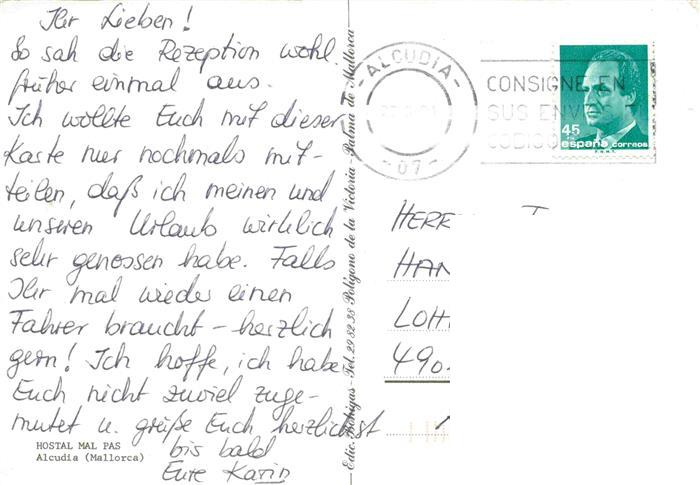 Ihr Lieben!
So sah die Rezeption wohl
früher einmal aus.
Ich wollte Euch mit dieser
Karte nur nochmals mit-
teilen, daß ich meinen und
unseren Urlaub wirklich
sehr genossen habe. Falls
Ihr mal wieder einen
Fahrer braucht - herzlich
gern! Ich hoffe, ich habe
Euch nicht zuviel zuge-
mutet u. grüße Euch herzlichst
bis bald
Eure Karin
HOSTAL MAL PAS
Alcudia (Mallorca)
Edic. Bohigas - Tel. 29 82 38 Polígono de la Victoria - Palma de Mallorca
- ALCUDIA -
- 07 -
CONSIGNE EN
SUS ENV
CODIGO
45
españa correos
HERR
HAN
LOH
490